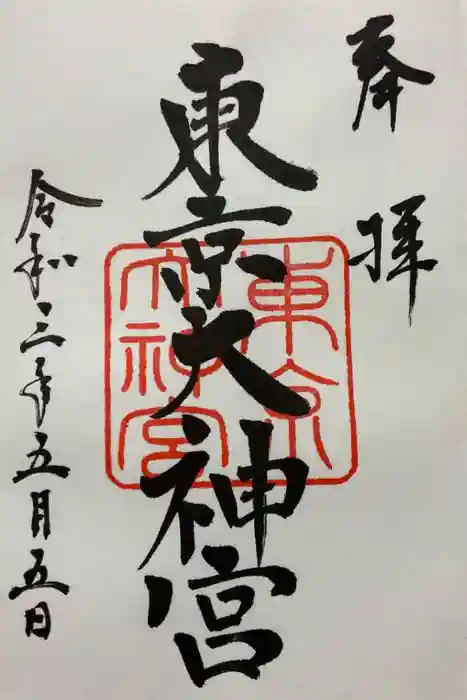 奉拝
東京大神宮
東京大神宮
令和三年五月五日